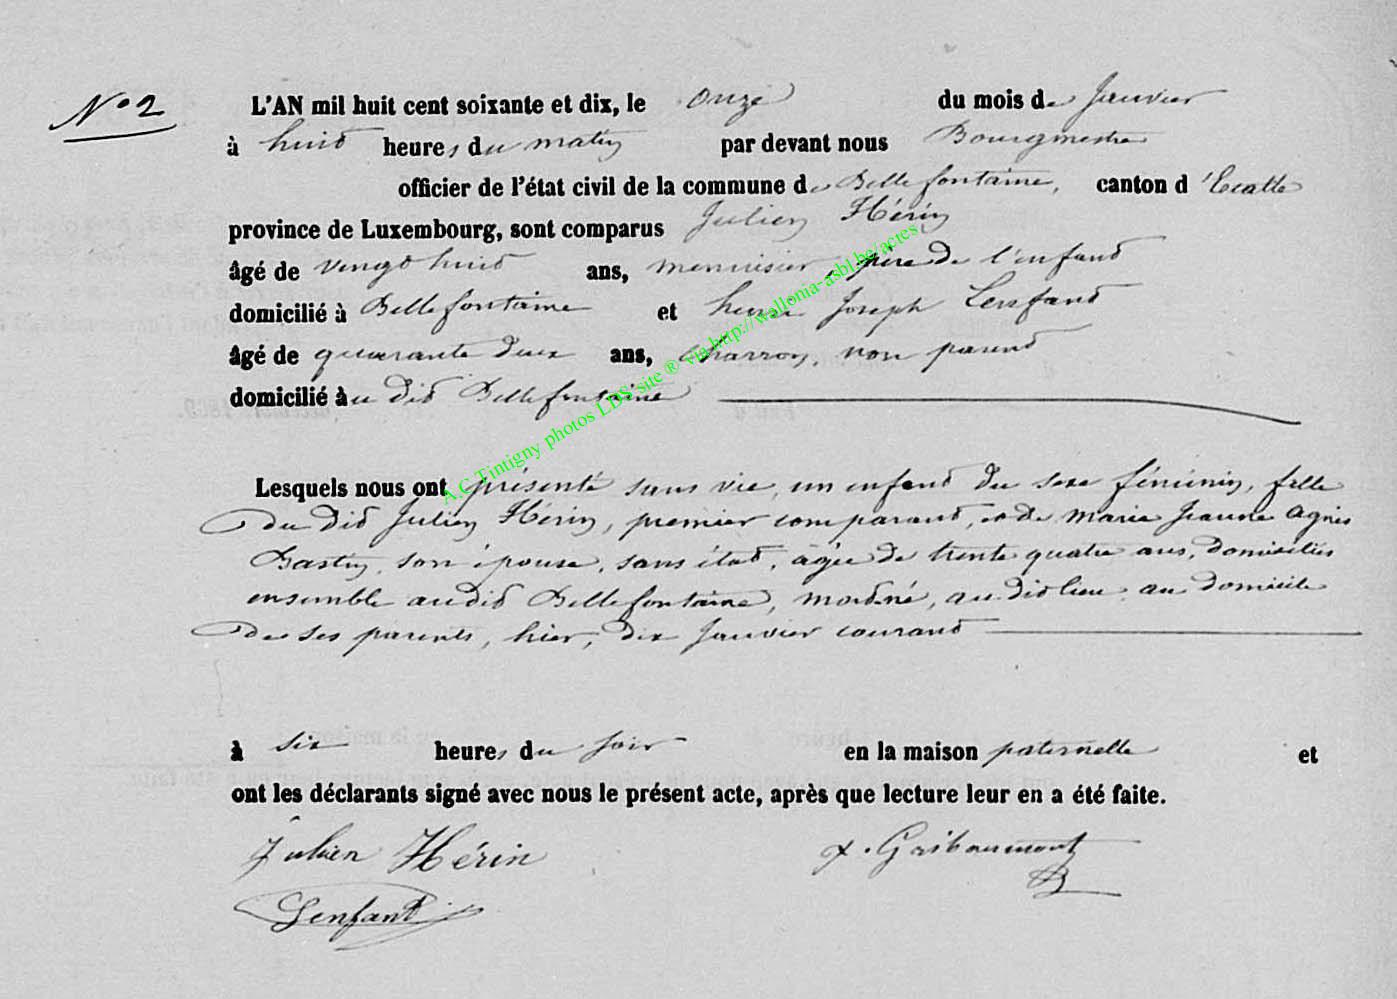 N° 2
L'AN mil huit cent soixante et dix, le onze du mois de Janvier
à huit heures du matin par devant nous Bourgmestre
officier de l'état civil de la commune de Bellefontaine, canton d'Etalle
province de Luxembourg, sont comparus Julien Hérin
âgé de vingt huit ans, menuisier, père de l'enfant
domicilié à Bellefontaine et Joseph Lenfant
âgé de quarante deux ans, charron, non parent
domicilié au dit Bellefontaine
Lesquels nous ont présenté sans vie, un enfant du sexe féminin, fille
du dit Julien Hérin, premier comparant, et de Marie Jeanne Agnès
Bastin, son épouse, sans état, agée de trente quatre ans, domiciliés
ensemble audit Bellefontaine, mort-né, au dit lieu au domicile
de ses parents, hier, dix Janvier courant
à six heures du soir en la maison paternelle et
ont les déclarants signé avec nous le présent acte, après que lecture leur en a été faite.
Julien Hérin
Lenfant
A.C.Tintigny photos LDS site ® via http://wallonia-asbl.be/actes